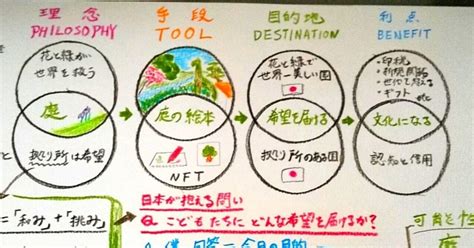 理念
PHILOSOPHY
花と緑が
世界を救う
庭
拠り所は希望
手段
TOOL
庭の絵本
NFT
目的地
DESTINATION
花と緑で
世界一美しい国
希望を届ける
拠り所のある国
利点
BENEFIT
・印税
・世代を超える
・ギフト etc
文化になる
認知と信用
日本が抱える問い
Q こどもたちにどんな希望を届けるか?
=「和み」+「挑み」
今日の目的
可能性
庭